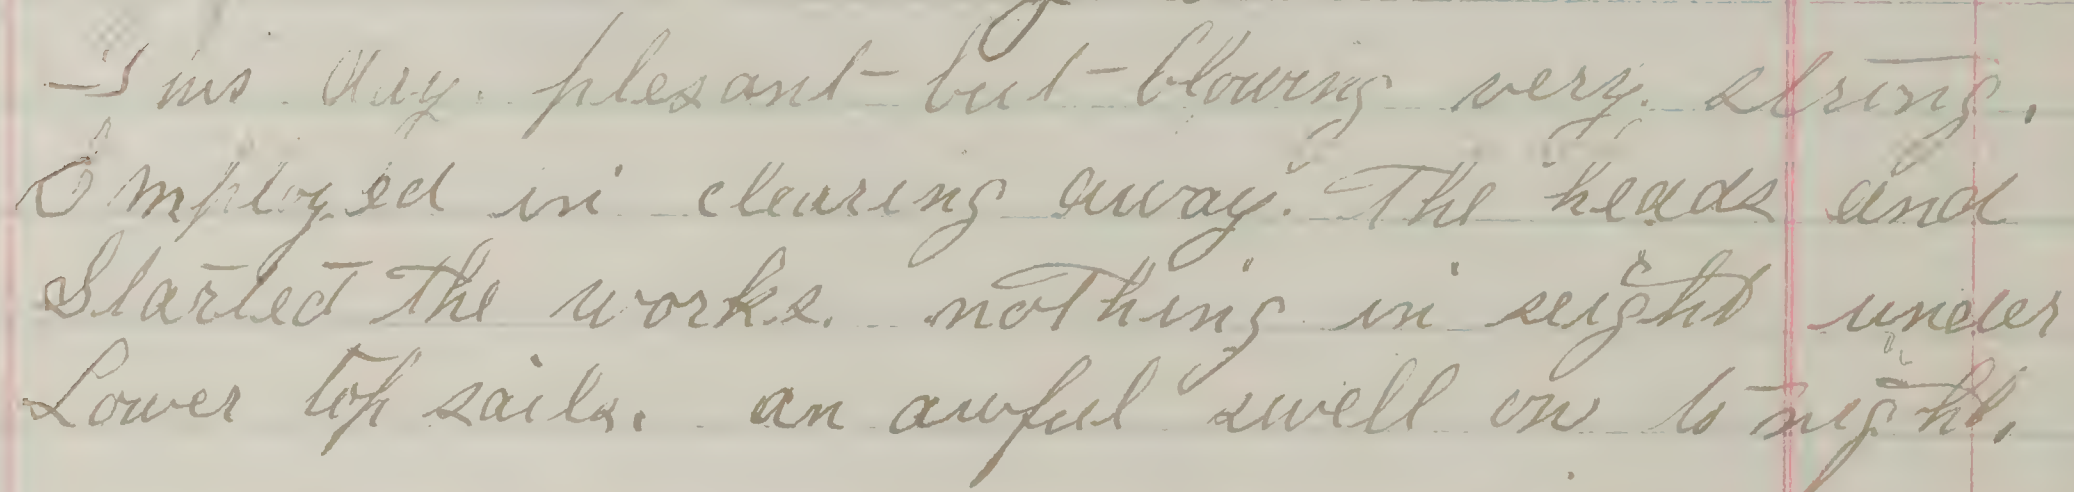 This day plesant but blowing very string.
Employed in clearing away. The heads and
Started the works. nothing in seight under
Lower top sails. an awful swell on to night.